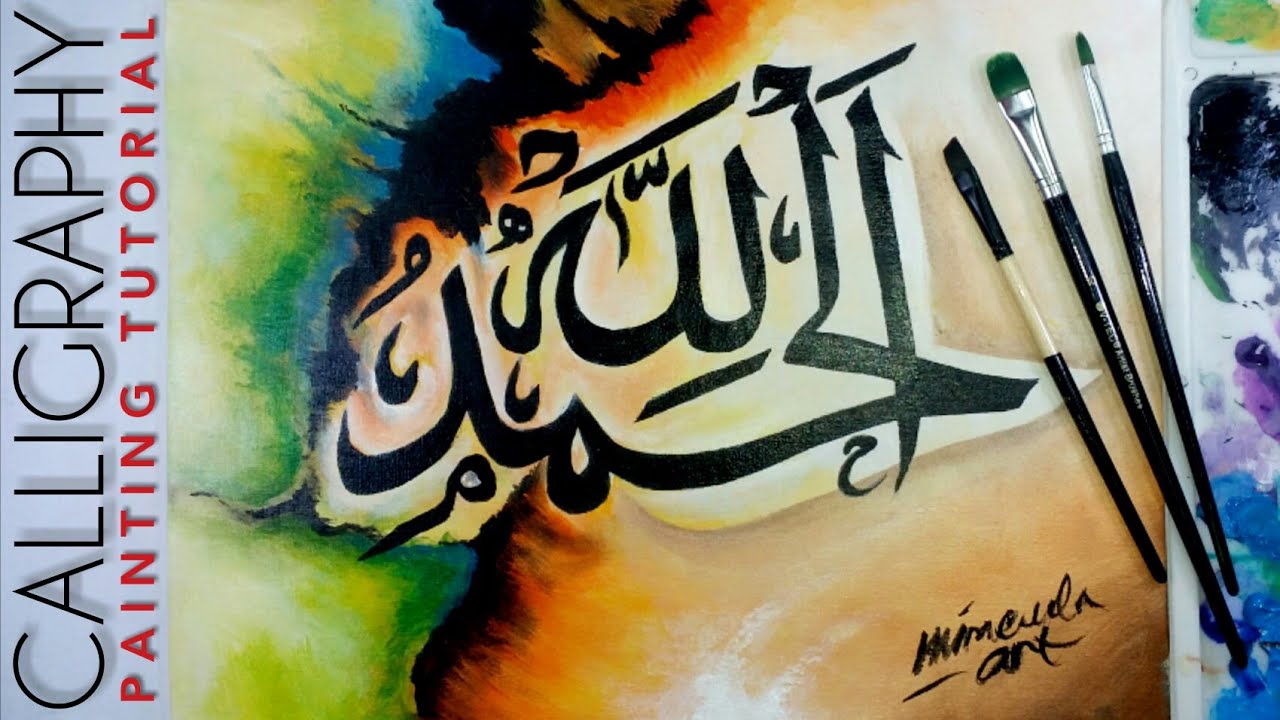 CALLIGRAPHY
PAINTING TUTORIAL
الحمد لله
art